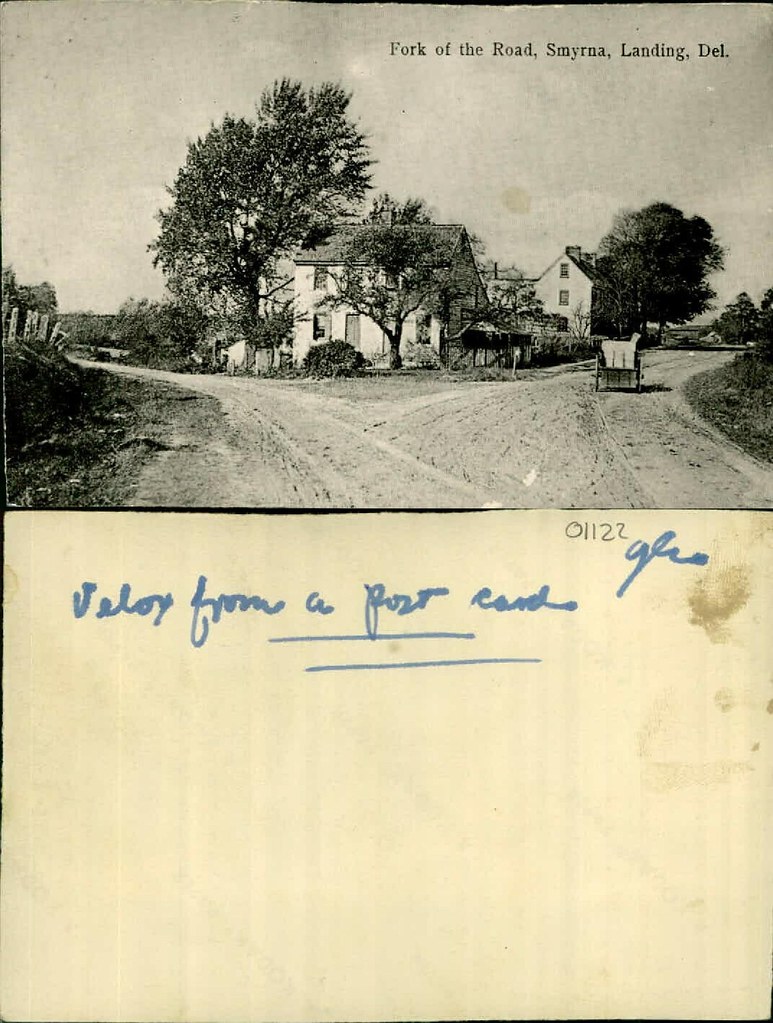 Fork of the Road, Smyrna, Landing, Del.
01122
Velox from a Post card